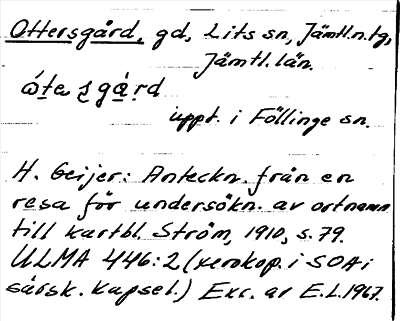 Ottersgård, gd, Lits sn, Jämtl.n.tg,
Jämtl. län.
ó́te ʂ gá̱ṛd
uppt. i Föllinge sn.
H. Geijer: Anteckn. från en
resa för undersökn. av ortnamn
till kartbl. Ström, 1910, s. 79.
ULMA 446:2 (xerokop. i SOA i
särsk. kapsel.) Exc. av E.L. 1967.